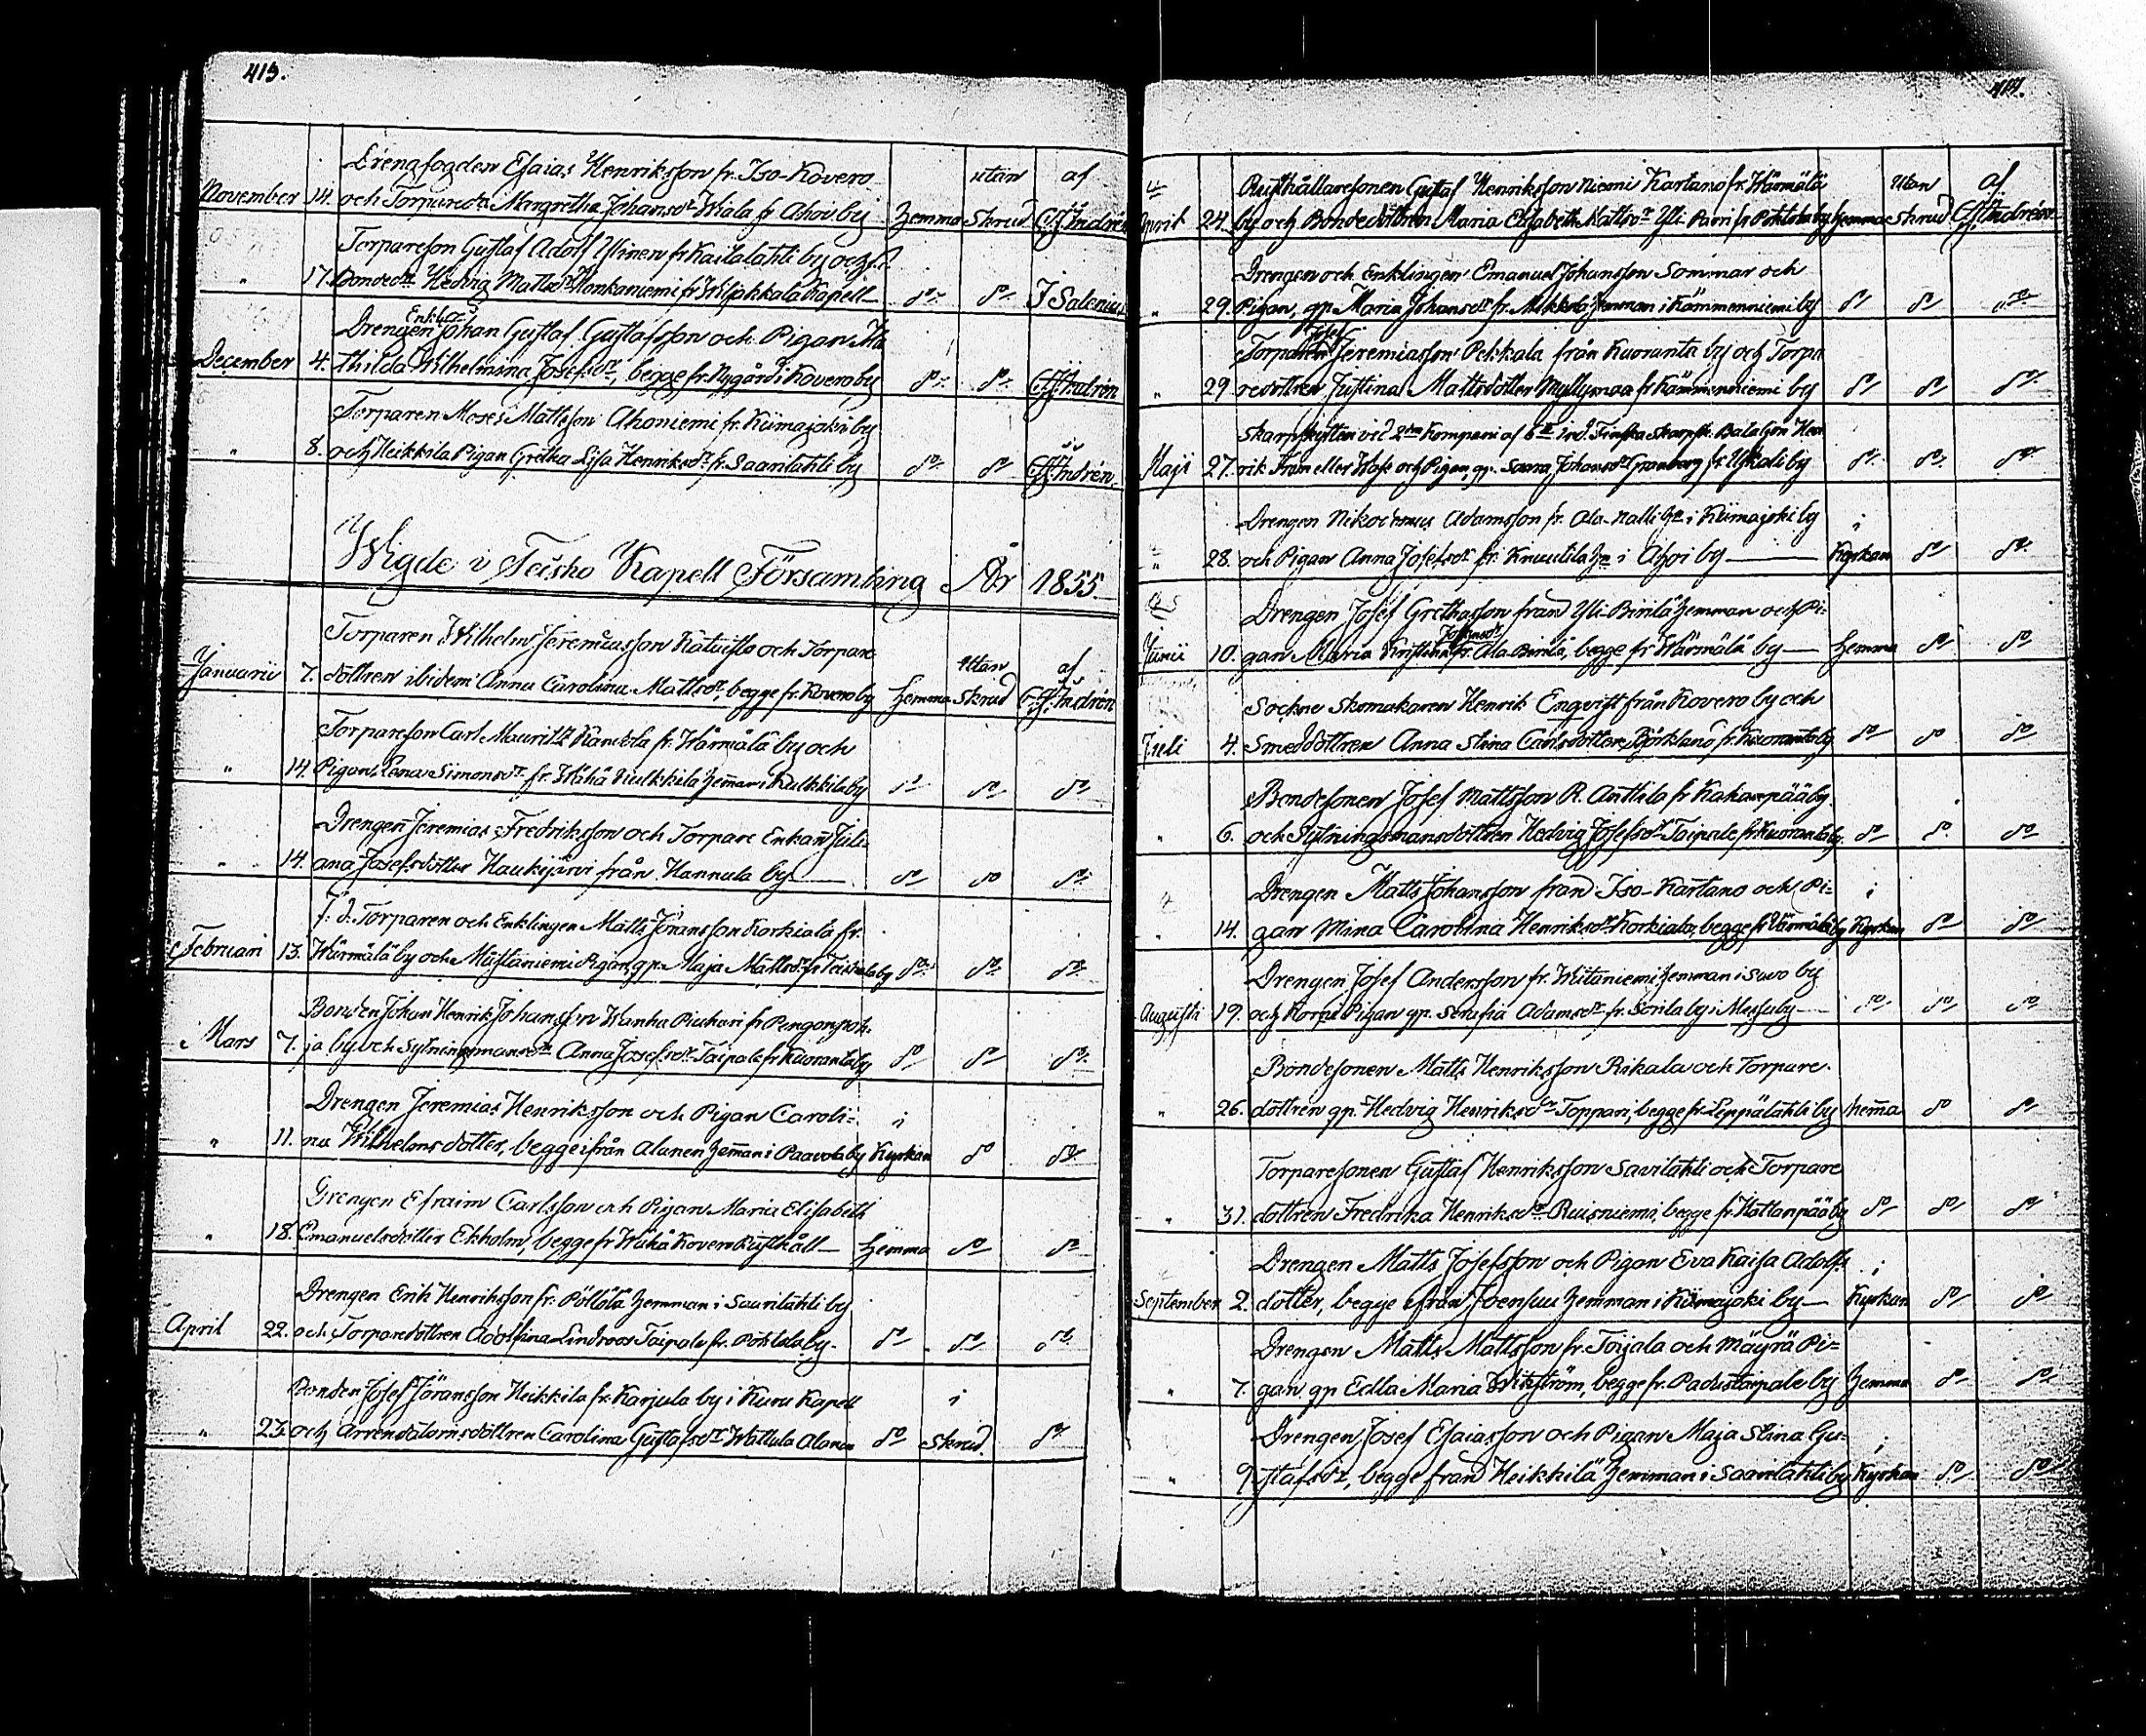 413.
Drengfogden Esaias Henriksson fr. Iso-Kovero utan af
November 14. och Torparedr Margretha Johansdr Wiala fr. Ahoi by Hemma Skrud CJ Andrén
Torpareson Gustaf Adolf fr Kaitalahti by och
" 17. Bondedr Hedvig Mattsdr Honkaniemi fr. Wiljakkala Kapell do do J Salenius
Enkl.
Drengen Johan Gustaf Gustafsson och Pigan Ma
December 4. thilda Wilhelmina Josefsdr, begge fr. Nygård i Kovero by do do CJ Andrén
Torparen Moses Mattsson Ahoniemi fr. Kiimajoki by
" 8. och Heikkilä Pigan Gretha Lisa Henriksdr fr. Saarilahti by do do CJ Andrén.
Wigde i Teisko Kapell Församling År 1855.
Torparen Wilhelm Jeremiasson Katvisto och Torpare utan af
Januarii 7. dottren ibidem Anna Carolina Mattsdr, begge fr. Kovero by Hemma Skrud CJ Andrén
Torpareson Carl Mauritz fr. Wärmälä by och
" 14. Pigan Lena Simonsdr fr. Wähä Kulkkila heman i Kulkkila by do do do
Drengen Jeremias Fredriksson och Torpare Enkan Juli
" 14. ana Josefsdotter Haukijärvi från Hannula by do do do
f. d. Torparen och Enklingen Matts Jöransson Korkiala fr.
Februari 13. Wärmälä by och Mustaniemi Pigan, gp. Maja Mattsdr fr Teiskola by do do do
Bonden Johan Henrik Johansson Wanha Piukari fr Pengonpoh-
Mars 7. ja by och Sytningsmansdr Anna Josefsdr Taipale fr Kuoranta by do do do
Drengen Jeremias Henriksson och Pigan Caroli- i
" 11. na Wilhelmsdotter, begge ifrån Alanen heman i Paavola by Kyrkan do do
Drengen Efraim Carlsson och Pigan Maria Elisabeth
" 18. Emanuelsdotter Ekholm, begge fr Wähä Kovero Rusthåll Hemma do do
Drengen Erik Henriksson fr. Pöllölä hemman i Saarilahti by
April 22. och Torparedottren Adolfina Lindroos Taipale fr. Pohtola by. do do do
Bonden Josef Jöransson Heikkila fr. Karjula by i Kuru Kapell i
" 23. och Arrendatornsdottren Carolina Gustafsdr Wattula Alanen do Skrud. do
414.
Rusthållaresonen Gustaf Henriksson Niemi Kartano fr. Wärmälä utan af
April 24. by och Bondedottren Maria Elisabeth Mattsdr Yli Pairi fr Pohtola by Hemma Skrud CJ Andrén
Drengen och Enklingen Emanuel Johansson Sommar och
" 29. Pigan, gp. Maria Johansdr fr. Mikkola hemman i Kämmenniemi by do do do
Josef
Torparen Jeremiasson Pekkala från Kuoranta by och Torpa
" 29 redottren Justina Mattsdotter Myllymaa fr Kämmenniemi by do do do
Skarpskytten vid 2dra Kompani af 6te ind. Finska Skarpsk. Bataljon Hen
Maji 27. rik Fram eller Wase och Pigan, gp. Saara Johansdr Granberg fr. Uskali by do do do
Drengen Nikodemus Adamsson fr. Ala-Nalli hn i Kiimajoki by i
" 28. och Pigan Anna Josefsdr fr. Knuutila hn i Ahoi by Kyrkan do do
Drengen Josef Grethasson från Yli Birilä hemman och Pi-
Johansdr
Junii 10. gan Maria Kristina fr. Ala Birilä, begge fr Wärmälä by Hemma do do
Sockne Skomakaren Henrik Engqvist från Kovero by och
Juli 4. Smeddottren Anna Stina Carlsdotter Björklund fr. Kuoranta by do do do
Bondesonen Josef Mattsson R. Anttila fr Kakarpää by
" 6. och Sytningsmansdottren Hedvig Josefsdr Taipale fr. Kuoranta by. do do do
Drengen Matts Johansson från Iso-Kartano och Pi- i
" 14. gan Mina Carolina Henriksdr Korkiala, begge fr Wärmälä by Kyrkan do do
Drengen Josef Andersson fr. Witaniemi hemman i Suvo by
Augusti 19. och Korpi Pigan gp. Serafia Adamsdr fr. Sorila by i Messuby do do do
Bondesonen Matts Henriksson Rikala och Torpare
" 26. dottren gp. Hedvig Henriksdr Toppari, begge fr. Leppälahti by hema do do
Torparesonen Gustaf Henriksson Savilahti och Torpare
" 31. dottren Fredrika Henriksdr Ruisniemi, begge fr. Hattanpää by do do do
Drengen Matts Josefsson och Pigan Eva Kaisa Adolfs i
September 2. dotter, begge ifrån Joensuu hemman i Kiimajoki by Kyrkan do do
Drengen Matts Mattsson fr. Toijala och Mäyrä Pi-
" 7. gan, gp Edla Maria Witström, begge fr. Padustaipale by Hemma do do
Drengen Josef Esaiasson och Pigan Maja Stina Gu- i
" 9. stafsdr, begge från Heikkilä hemman i Saarilahti by Kyrkan do do